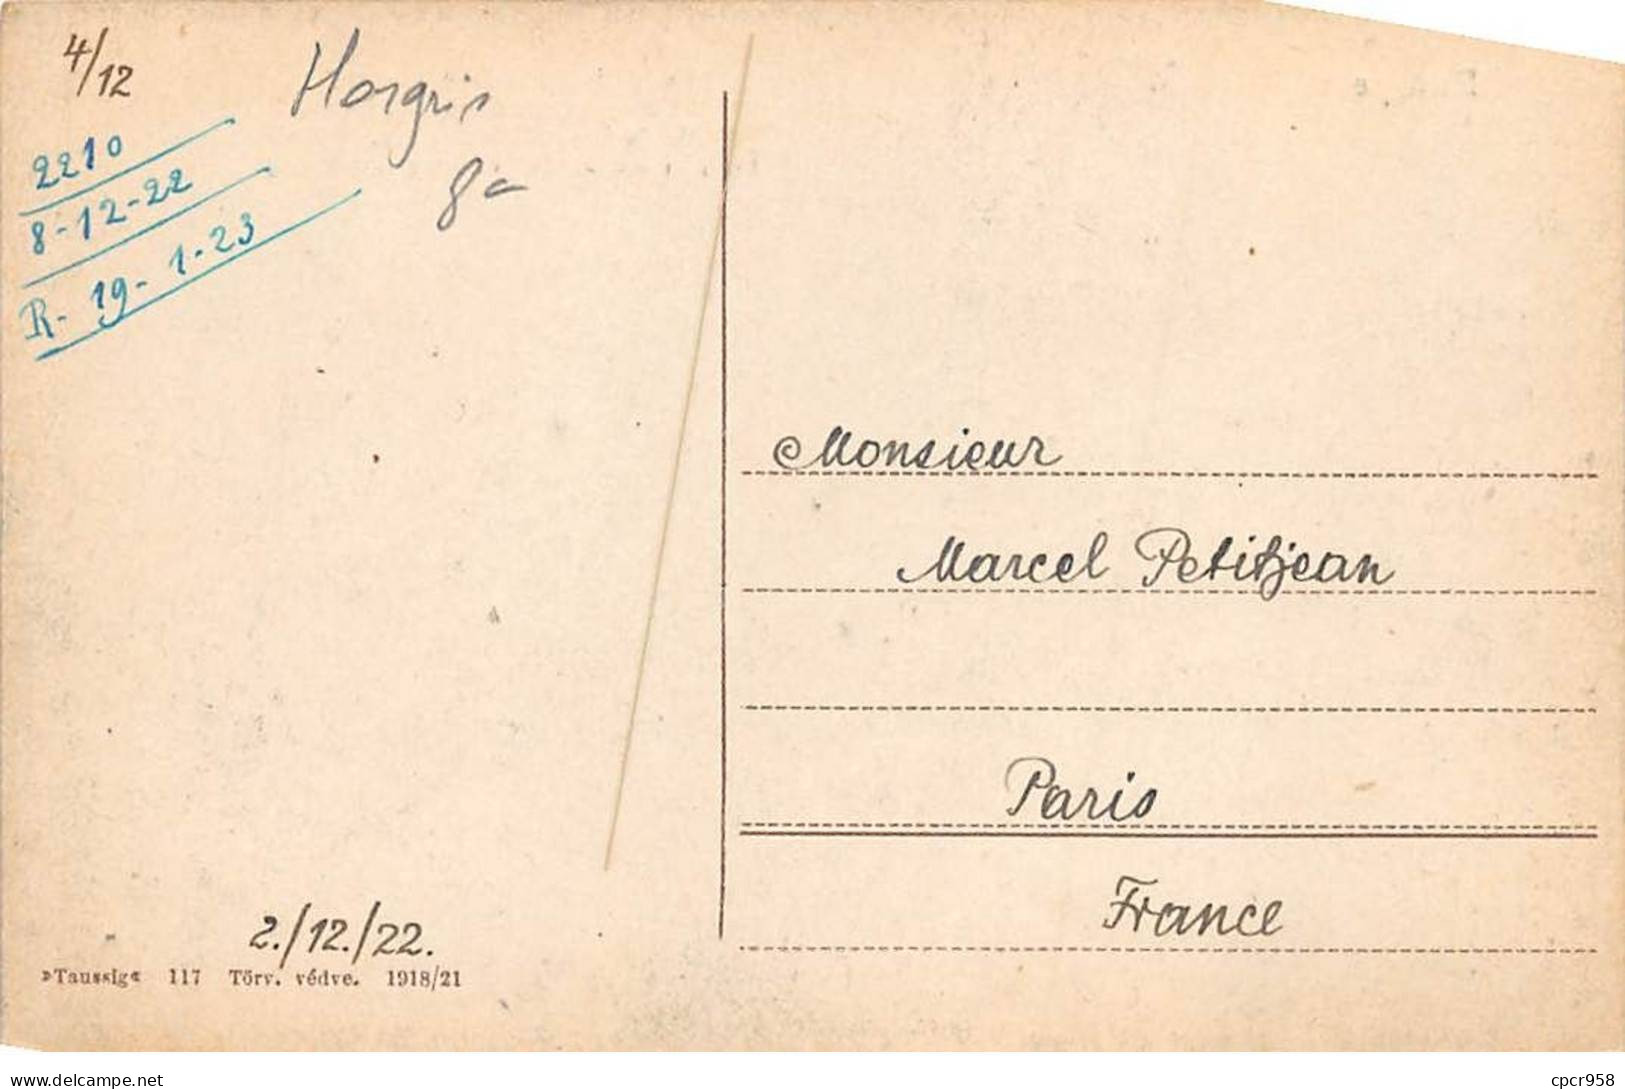 4/12
Horgris
8c
2210
8-12-22
R- 19-1-23
Monsieur
Marcel Petitjean
Paris
France
2./12./22.
»Taussig« 117 Törv. védve. 1918/21
delcampe.net
cpcr958